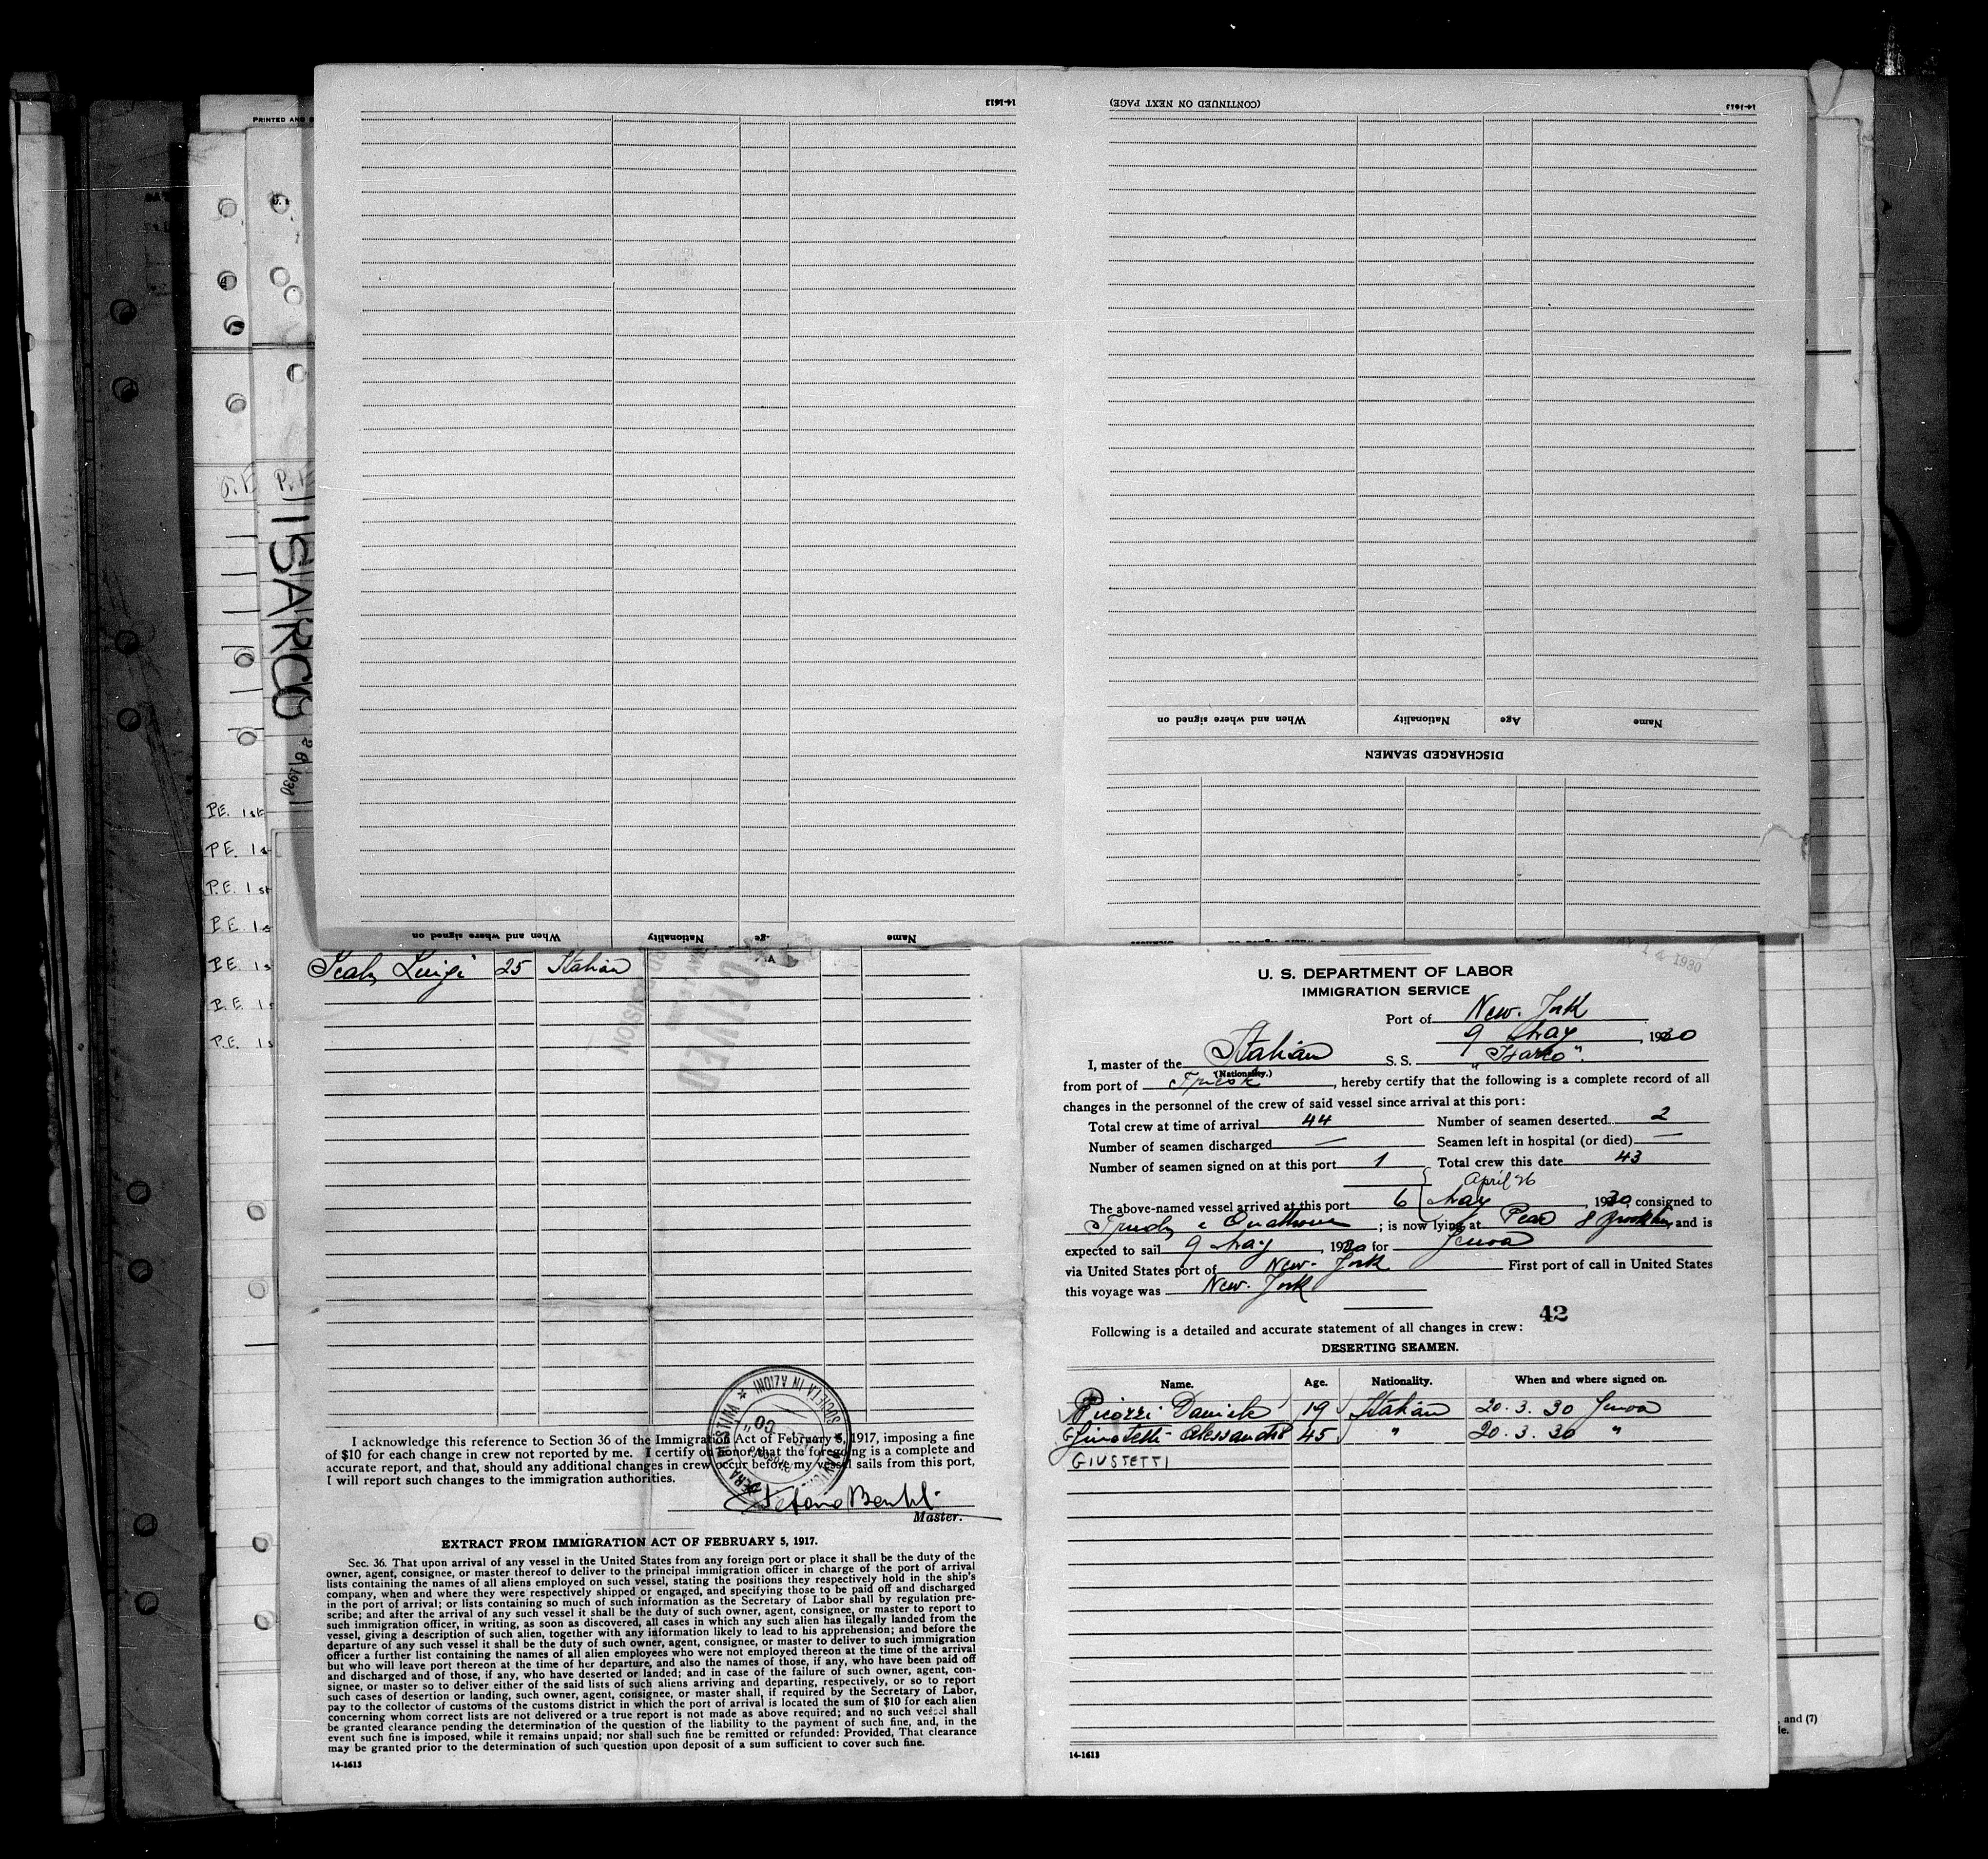 PRINTED AND
14-1613
(CONTINUED ON NEXT PAGE)
14-1613
ISARCO
1930
When and where signed on
Nationality
Age
Name
DISCHARGED SEAMEN
P.E. 1st
P.E. 1s
P.E. 1st
P.E. 1s
P.E. 1s
P.E. 1s
P.E. 1s
When and where signed on
Nationality
Name
Luigi 25 Italian
RECEIVED
MAY
DIVISION
I acknowledge this reference to Section 36 of the Immigration Act of February 5, 1917, imposing a fine
of $10 for each change in crew not reported by me. I certify on honor that the foregoing is a complete and
accurate report, and that, should any additional changes in crew occur before my vessel sails from this port,
I will report such changes to the immigration authorities.
SOCIETA IN AZIONI
Stefano
Master.
EXTRACT FROM IMMIGRATION ACT OF FEBRUARY 5, 1917.
Sec. 36. That upon arrival of any vessel in the United States from any foreign port or place it shall be the duty of the
owner, agent, consignee, or master thereof to deliver to the principal immigration officer in charge of the port of arrival
lists containing the names of all aliens employed on such vessel, stating the positions they respectively hold in the ship's
company, when and where they were respectively shipped or engaged, and specifying those to be paid off and discharged
in the port of arrival; or lists containing so much of such information as the Secretary of Labor shall by regulation pre-
scribe; and after the arrival of any such vessel it shall be the duty of such owner, agent, consignee, or master to report to
such immigration officer, in writing, as soon as discovered, all cases in which any such alien has illegally landed from the
vessel, giving a description of such alien, together with any information likely to lead to his apprehension; and before the
departure of any such vessel it shall be the duty of such owner, agent, consignee, or master to deliver to such immigration
officer a further list containing the names of all alien employees who were not employed thereon at the time of the arrival
but who will leave port thereon at the time of her departure, and also the names of those, if any, who have been paid off
and discharged and of those, if any, who have deserted or landed; and in case of the failure of such owner, agent, con-
signee, or master so to deliver either of the said lists of such aliens arriving and departing, respectively, or so to report
such cases of desertion or landing, such owner, agent, consignee, or master shall, if required by the Secretary of Labor,
pay to the collector of customs of the customs district in which the port of arrival is located the sum of $10 for each alien
concerning whom correct lists are not delivered or a true report is not made as above required; and no such vessel shall
be granted clearance pending the determination of the question of the liability to the payment of such fine, and, in the
event such fine is imposed, while it remains unpaid; nor shall such fine be remitted or refunded: Provided, That clearance
may be granted prior to the determination of such question upon deposit of a sum sufficient to cover such fine.
14-1613
1930
U. S. DEPARTMENT OF LABOR
IMMIGRATION SERVICE
Port of New-York
9 May, 1930
I, master of the Italian S. S. "Isarco".
(Nationality.)
from port of Trieste, hereby certify that the following is a complete record of all
changes in the personnel of the crew of said vessel since arrival at this port:
Total crew at time of arrival 44 Number of seamen deserted 2
Number of seamen discharged — Seamen left in hospital (or died) —
Number of seamen signed on at this port 1 Total crew this date 43
April 26
The above-named vessel arrived at this port 6 May, 1930, consigned to
; is now lying at 8 Brooklyn, and is
expected to sail 9 May, 1930 for Genoa
via United States port of New-York First port of call in United States
this voyage was New-York
42
Following is a detailed and accurate statement of all changes in crew:
DESERTING SEAMEN.
Name. Age. Nationality. When and where signed on.
Picozzi Daniele 19 Italian 20.3.30 Genoa
Alessandro 45 " 20.3.30 "
GIUSTETTI
14-1613
, and (7)